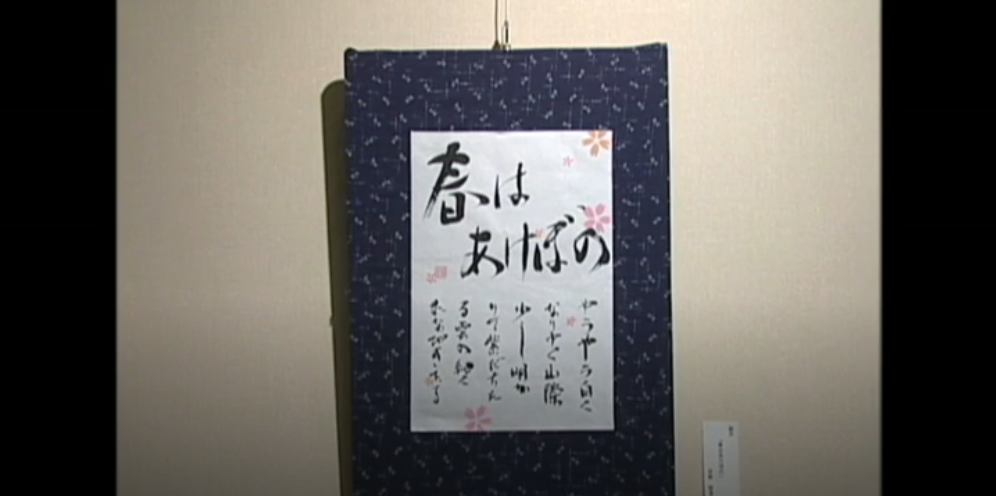 春は
あけぼの
やうやう白く
なりゆく山際
少し明か
りて紫だちた
る雲の細く
たなびきたる